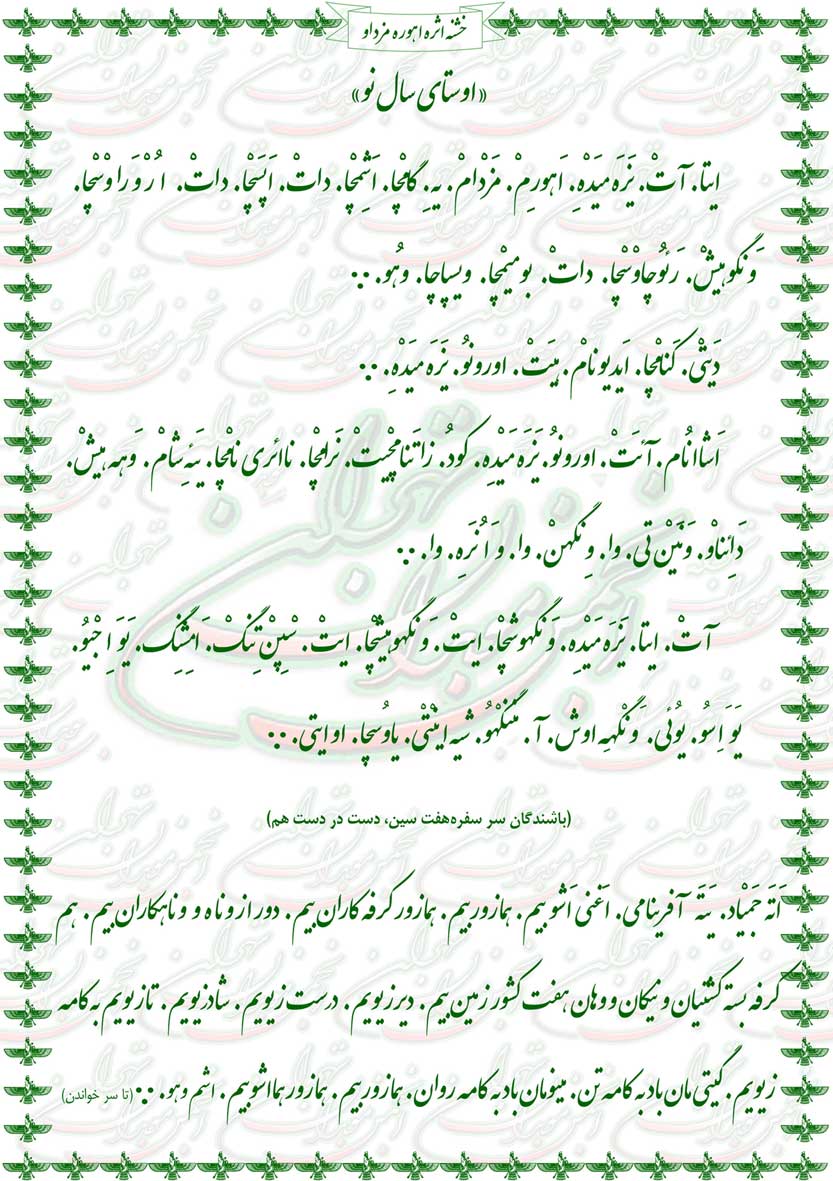 خشنه اثره اهوره مزداو
«اوستای سال نو»
ایتا. آتْ. یَزَه مَیدَهِ. اَهورِمْ. مَزْدامْ. یِه. گامْچا. اَشِمْچا. داتْ. اَپَسْچا. داتْ. اُرْوَراوْسْچا.
وَنگوهیشْ. رَئُوچاوْسْچا. داتْ. بومیمْچا. ویسپاچا. وُهو.
دَیتْی. گَنامْچا. ایدیونامْ. هیَتْ. اورونُو. یَزَه مَیدَهِ.
اَشااُنام. آئتْ. اورونُو. یَزَه مَیدِه. کودُ. زاتَنامْچیتْ. نَرامْچا. نااِئری نامْچا. یَئِه شامْ. وَهه هیشْ.
دَاِئناو. وَنَیْن تی. وا. وِنگهنْ. وا. وَاُنَرِه. وا.
آتْ. ایتا. یَزَه مَیدِه. وَنگهوشچا. ایتْ. وَنگهوهیشْچا. ایتْ. سْپِنْ تِنگْ. اَمِشِنگ. یَوَاِجیُو.
یَوَاِسُو. یُوئی. وَنْگهِه اوش. آ. مَنَنْگهُو. شیه اینْتی. یاوُسچا. اوایتی.
(باشندگان سر سفره هفت سین، دست در دست هم)
اَتَه جَمْیاد. یَتَه آفرینامی. اَغنی اَشو بیم. همازور بیم. همازور کرفه کاران بیم. دور از وناه و وناهکاران بیم. هم
کرفه بسته کشتیان و نیکان و وهان هفت کشور زمین بیم. دیر زیویم. درست زیویم. شاد زیویم. تا زیویم به کامه
زیویم. گیتی مان باد به کامه تن. مینومان باد به کامه روان. همازور بیم. همازور هما اشو بیم. اشم وهو. (تا سر خواندن)